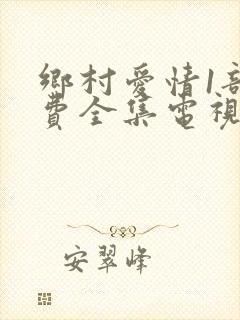 鄉村愛情1部
費全集電視
安翠峰